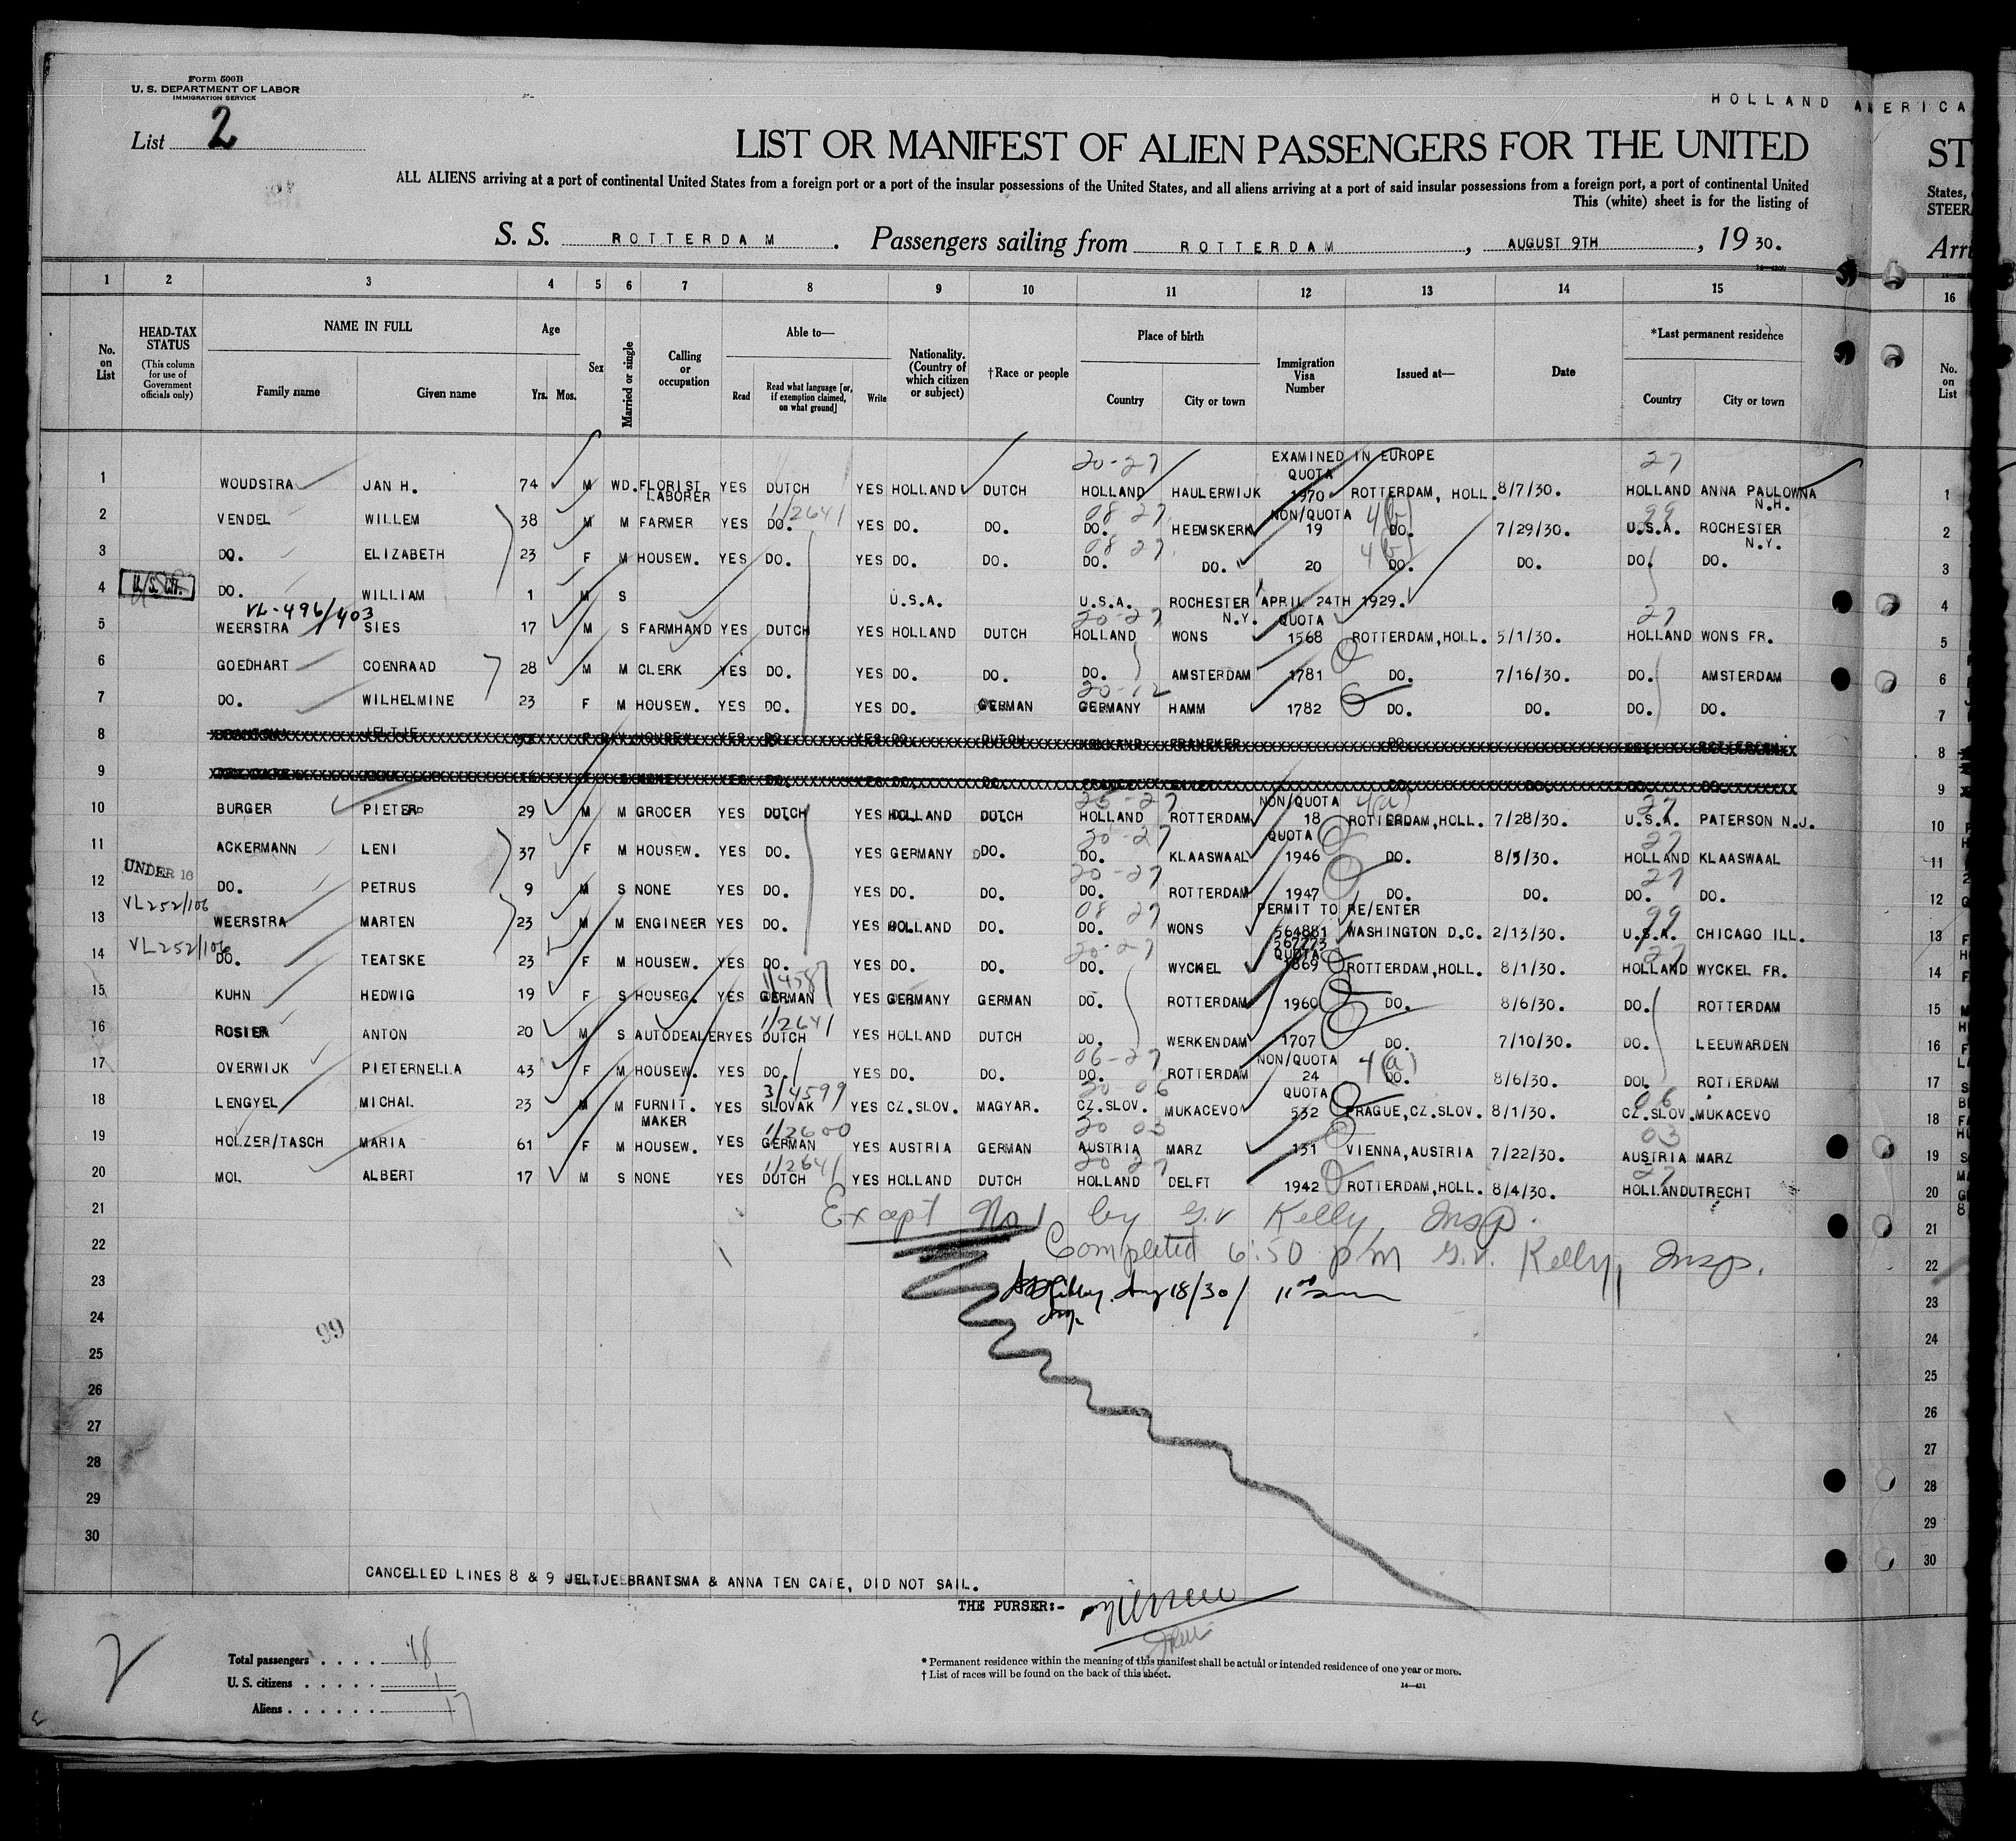 Form 500B
U. S. DEPARTMENT OF LABOR
IMMIGRATION SERVICE
HOLLAND AMERICA
List 2
LIST OR MANIFEST OF ALIEN PASSENGERS FOR THE UNITED
ST
ALL ALIENS arriving at a port of continental United States from a foreign port or a port of the insular possessions of the United States, and all aliens arriving at a port of said insular possessions from a foreign port, a port of continental United
States,
This (white) sheet is for the listing of
STEER
S. S. ROTTERDAM. Passengers sailing from ROTTERDAM, AUGUST 9TH, 19 30.
Arri
1 2 3 4 5 6 7 8 9 10 11 12 13 14 15 16
No. on List
HEAD-TAX STATUS (This column for use of Government officials only)
NAME IN FULL Family name Given name
Age Yrs. Mos.
Sex
Married or single
Calling or occupation
Able to— Read Read what language [or, if exemption claimed, on what ground] Write
Nationality. (Country of which citizen or subject)
†Race or people
Place of birth Country City or town
Immigration Visa Number
Issued at—
Date
*Last permanent residence Country City or town
No. on List
20-27 EXAMINED IN EUROPE 27
QUOTA
1 WOUDSTRA JAN H. 74 M WD. FLORIST LABORER YES DUTCH YES HOLLAND DUTCH HOLLAND HAULERWIJK 1970 ROTTERDAM, HOLL. 8/7/30. HOLLAND ANNA PAULOWNA N.H. 1
1/2641 08 27 NON/QUOTA 4(b) 99
2 VENDEL WILLEM 38 M M FARMER YES DO. YES DO. DO. DO. HEEMSKERK 19 DO. 7/29/30. U.S.A. ROCHESTER N.Y. 2
08 27 4(b)
3 DO. ELIZABETH 23 F M HOUSEW. YES DO. YES DO. DO. DO. DO. 20 DO. DO. DO. DO. 3
4 U.S. CIT. DO. WILLIAM 1 M S U.S.A. U.S.A. ROCHESTER N.Y. APRIL 24TH 1929. 4
VL-496/403 20-27 QUOTA 27
5 WEERSTRA SIES 17 M S FARMHAND YES DUTCH YES HOLLAND DUTCH HOLLAND WONS 1568 ROTTERDAM, HOLL. 5/1/30. HOLLAND WONS FR. 5
6 GOEDHART COENRAAD 28 M M CLERK YES DO. YES DO. DO. DO. AMSTERDAM 1781 DO. 7/16/30. DO. AMSTERDAM 6
20-12
7 DO. WILHELMINE 23 F M HOUSEW. YES DO. YES DO. GERMAN GERMANY HAMM 1782 DO. DO. DO. DO. 7
8 JELTJE F HOUSEW. YES DO. YES DO. DUTCH FRANEKER DO. ROTTERDAM 8
9 S NONE YES DO. YES DO. DO. FRANCE DO. DO. DO. DO. 9
25-27 NON/QUOTA 4(a) 27
10 BURGER PIETER 29 M M GROCER YES DUTCH YES HOLLAND DUTCH HOLLAND ROTTERDAM 18 ROTTERDAM, HOLL. 7/28/30. U.S.A. PATERSON N.J. 10
20-27 QUOTA 27
11 ACKERMANN LENI 37 F M HOUSEW. YES DO. YES GERMANY DO. DO. KLAASWAAL 1946 DO. 8/5/30. HOLLAND KLAASWAAL 11
UNDER 16 20-27 27
12 DO. PETRUS 9 M S NONE YES DO. YES DO. DO. DO. ROTTERDAM 1947 DO. DO. DO. DO. 12
VL252/106 08 27 PERMIT TO RE/ENTER 99
13 WEERSTRA MARTEN 23 M M ENGINEER YES DO. YES HOLLAND DO. DO. WONS 564881 WASHINGTON D.C. 2/13/30. U.S.A. CHICAGO ILL. 13
VL252/106 20-27 567773 QUOTA 27
14 DO. TEATSKE 23 F M HOUSEW. YES DO. YES DO. DO. DO. WYCKEL 1869 ROTTERDAM, HOLL. 8/1/30. HOLLAND WYCKEL FR. 14
1/4587
15 KUHN HEDWIG 19 F S HOUSEG. YES GERMAN YES GERMANY GERMAN DO. ROTTERDAM 1960 DO. 8/6/30. DO. ROTTERDAM 15
1/2641
16 ROSIER ANTON 20 M S AUTODEALER YES DUTCH YES HOLLAND DUTCH DO. WERKENDAM 1707 DO. 7/10/30. DO. LEEUWARDEN 16
06-27 NON/QUOTA 4(a)
17 OVERWIJK PIETERNELLA 43 F M HOUSEW. YES DO. YES DO. DO. DO. ROTTERDAM 24 DO. 8/6/30. DO. ROTTERDAM 17
3/4599 20 06 QUOTA 06
18 LENGYEL MICHAL 23 M M FURNIT. MAKER YES SLOVAK YES CZ.SLOV. MAGYAR. CZ.SLOV. MUKACEVO 532 PRAGUE, CZ.SLOV. 8/1/30. CZ.SLOV. MUKACEVO 18
1/2600 20 03 03
19 HOLZER/TASCH MARIA 61 F M HOUSEW. YES GERMAN YES AUSTRIA GERMAN AUSTRIA MARZ 131 VIENNA, AUSTRIA 7/22/30. AUSTRIA MARZ 19
1/2641 20 27 27
20 MOL ALBERT 17 M S NONE YES DUTCH YES HOLLAND DUTCH HOLLAND DELFT 1942 ROTTERDAM, HOLL. 8/4/30. HOLLAND UTRECHT 20
21 Except No 1 by G.V. Kelly, Insp. 21
22 Completed 6:50 pm G.V. Kelly, Insp. 22
23 Aug 18/30/ 11 00 am 23
Insp.
24 24
99
25 25
26 26
27 27
28 28
29 29
30 30
CANCELLED LINES 8 & 9 JELTJE BRANTSMA & ANNA TEN CATE, DID NOT SAIL.
THE PURSER:-
2
Total passengers . . . . 18
U. S. citizens . . . . . 1
Aliens . . . . . . 17
* Permanent residence within the meaning of this manifest shall be actual or intended residence of one year or more.
† List of races will be found on the back of this sheet.
14—431